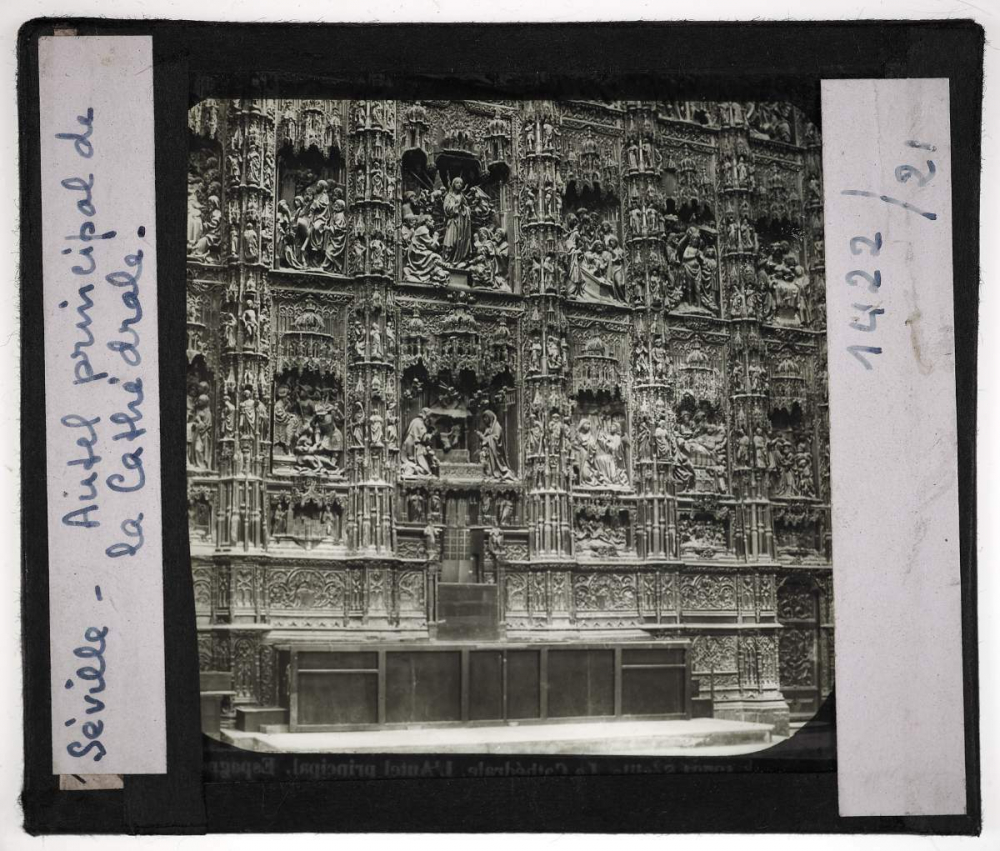 Séville - Autel principal de
la Cathédrale.
1422/21
La Cathédrale. L'Autel principal. Espagn